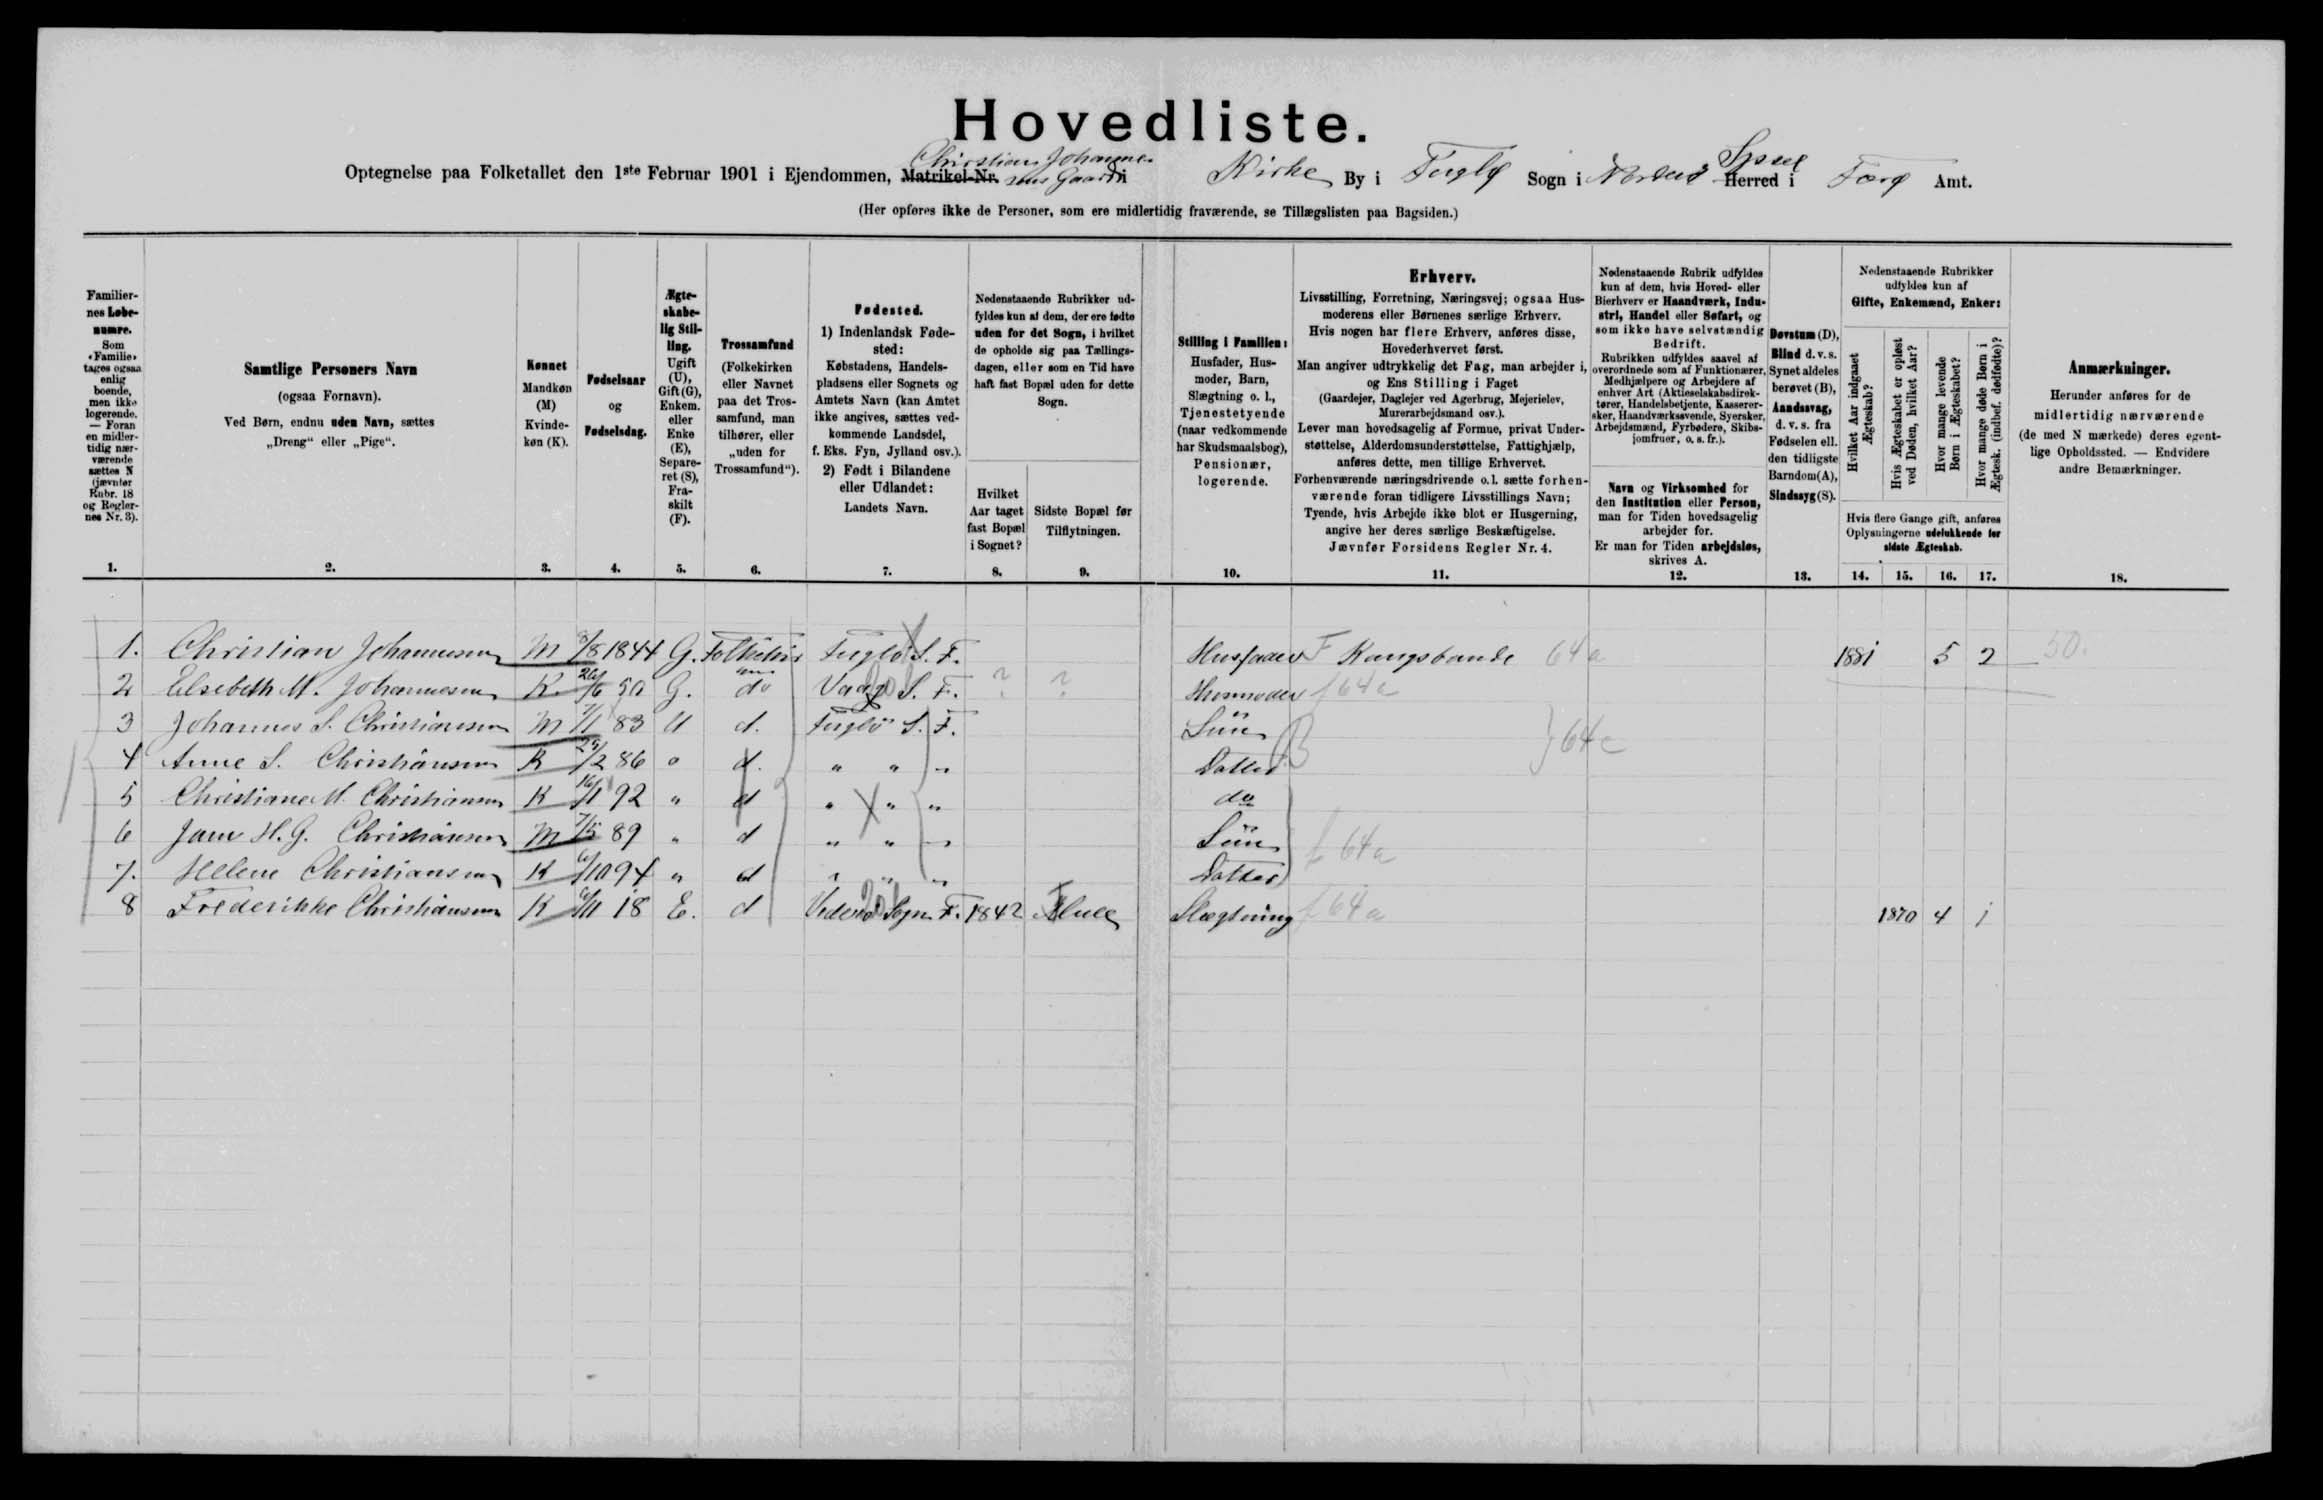 Hovedliste.
Christian Johannes-
Optegnelse paa Folketallet den 1ste Februar 1901 i Ejendommen, Matrikel-Nr. sens Gaard i Kirke By i Fuglø Sogn i Norderø Herred i Færø Amt.
Syssel
(Her opføres ikke de Personer, som ere midlertidig fraværende, se Tillægslisten paa Bagsiden.)
Familiernes Løbenumre.
Som «Familie» tages ogsaa enlig boende, men ikke logerende. — Foran en midlertidig nærværende sættes N (jævnfør Rubr. 18 og Reglernes Nr. 3).
1.
Samtlige Personers Navn
(ogsaa Fornavn).
Ved Børn, endnu uden Navn, sættes
„Dreng“ eller „Pige“.
2.
Kønnet
Mandkøn (M)
Kvindekøn (K).
3.
Fødselsaar
og
Fødselsdag.
4.
Ægteskabelig Stilling.
Ugift (U), Gift (G), Enkem. eller Enke (E), Separeret (S), Fraskilt (F).
5.
Trossamfund
(Folkekirken eller Navnet paa det Trossamfund, man tilhører, eller „uden for Trossamfund“).
6.
Fødested.
1) Indenlandsk Fødested:
Købstadens, Handelspladsens eller Sognets og Amtets Navn (kan Amtet ikke angives, sættes vedkommende Landsdel, f. Eks. Fyn, Jylland osv.).
2) Født i Bilandene eller Udlandet:
Landets Navn.
7.
Nedenstaaende Rubrikker udfyldes kun af dem, der ere fødte uden for det Sogn, i hvilket de opholde sig paa Tællingsdagen, eller som en Tid have haft fast Bopæl uden for dette Sogn.
Hvilket Aar taget fast Bopæl i Sognet?
8.
Sidste Bopæl før Tilflytningen.
9.
Stilling i Familien:
Husfader, Husmoder, Barn, Slægtning o. l., Tjenestetyende (naar vedkommende har Skudsmaalsbog), Pensionær, logerende.
10.
Erhverv.
Livsstilling, Forretning, Næringsvej; ogsaa Husmoderens eller Børnenes særlige Erhverv.
Hvis nogen har flere Erhverv, anføres disse, Hovederhvervet først.
Man angiver udtrykkelig det Fag, man arbejder i, og Ens Stilling i Faget
(Gaardejer, Daglejer ved Agerbrug, Mejerielev, Murerarbejdsmand osv.).
Lever man hovedsagelig af Formue, privat Understøttelse, Alderdomsunderstøttelse, Fattighjælp, anføres dette, men tillige Erhvervet.
Forhenværende næringsdrivende o. l. sætte forhenværende foran tidligere Livsstillings Navn;
Tyende, hvis Arbejde ikke blot er Husgerning, angive her deres særlige Beskæftigelse.
Jævnfør Forsidens Regler Nr. 4.
11.
Nedenstaaende Rubrik udfyldes kun af dem, hvis Hoved- eller Bierhverv er Haandværk, Industri, Handel eller Søfart, og som ikke have selvstændig Bedrift.
Rubrikken udfyldes saavel af overordnede som af Funktionærer, Medhjælpere og Arbejdere af enhver Art (Aktieselskabsdirektører, Handelsbetjente, Kasserersker, Haandværkssvende, Syersker, Arbejdsmænd, Fyrbødere, Skibsjomfruer, o. s. fr.).
Navn og Virksomhed for den Institution eller Person, man for Tiden hovedsagelig arbejder for.
Er man for Tiden arbejdsløs, skrives A.
12.
Døvstum (D),
Blind d. v. s. Synet aldeles berøvet (B),
Aandssvag, d. v. s. fra Fødselen ell. den tidligste Barndom (A),
Sindssyg (S).
13.
Nedenstaaende Rubrikker udfyldes kun af
Gifte, Enkemænd, Enker:
Hvilket Aar indgaaet Ægteskab?
Hvis Ægteskabet er opløst ved Døden, hvilket Aar?
Hvor mange levende Børn i Ægteskabet?
Hvor mange døde Børn i Ægtesk. (indbef. dødfødte)?
Hvis flere Gange gift, anføres Oplysningerne udelukkende for sidste Ægteskab.
14. 15. 16. 17.
Anmærkninger.
Herunder anføres for de midlertidig nærværende (de med N mærkede) deres egentlige Opholdssted. — Endvidere andre Bemærkninger.
18.
1. Christian Johannesen M 8/8 1844 G. Folkekirken Fuglø S. F. Husfader F Kongsbonde 64a 1881 5 2 50.
2 Elsebeth M. Johannesen K. 26/6 50 G. do Vaag S. F. ? ? Husmoder f 64a
3 Johannes S. Christiansen M 7/1 83 U d. Fuglø S. F. Søn
4 Anne S. Christiansen K 29/2 86 " d. " " " Datter } 64c
5 Christiane M. Christiansen K 16/1 92 " d " " " do
6 Jans H. G. Christiansen M 7/5 89 " d " " " Søn f 64a
7. Helene Christiansen K 6/10 94 " d " " " Datter
8 Frederikke Christiansen K 6/11 18 E. d Viderø Sogn F. 1842 Slægtning f 64a 1870 4 1